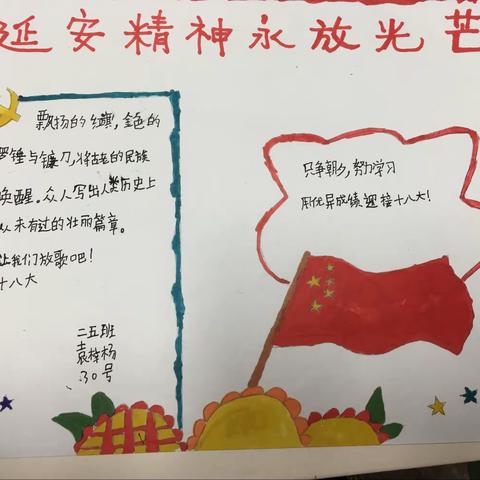 延安精神永放光芒
飘扬的红旗，金色的
锣锤与镰刀，将古老的民族
唤醒。众人写出人类历史上
从未有过的壮丽篇章。
让我们放歌吧！
十八大
二五班
袁梓杨
30号
只争朝夕，努力学习
用优异成绩迎接十八大！